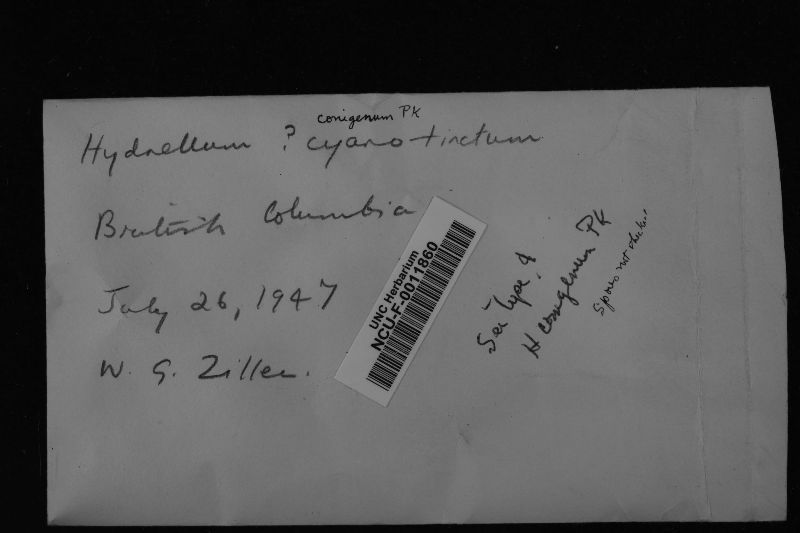 conigenum PK
Hydnellum ? cyano-tinctum
British Columbia
July 26, 1947
W. G. Ziller.
UNC Herbarium
NCU-F-0011860
See Type of
H conigenum PK
Spores not checked